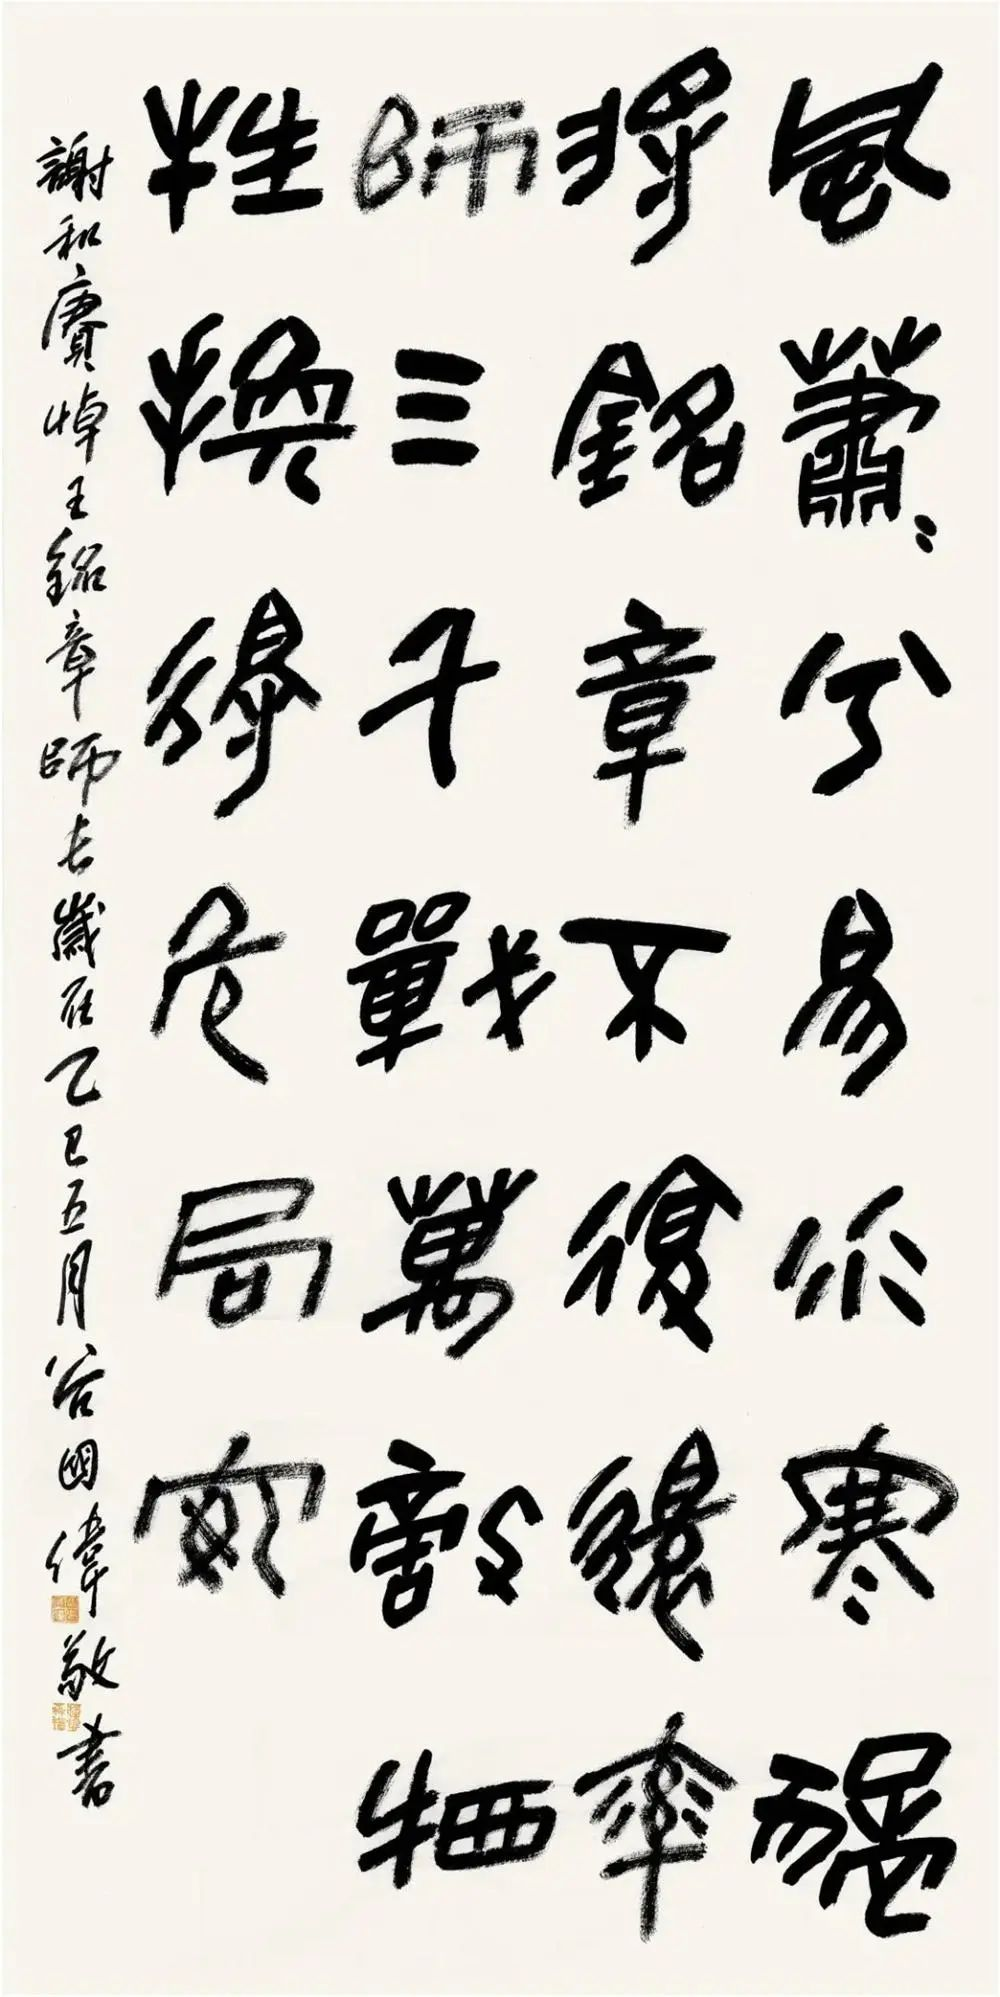 風蕭〻兮易水寒強
將銘章不復還率
師三千戰萬敵牺
牲換得危局安
謝和賡悼王銘章師長歲在乙巳五月谷國偉敬書